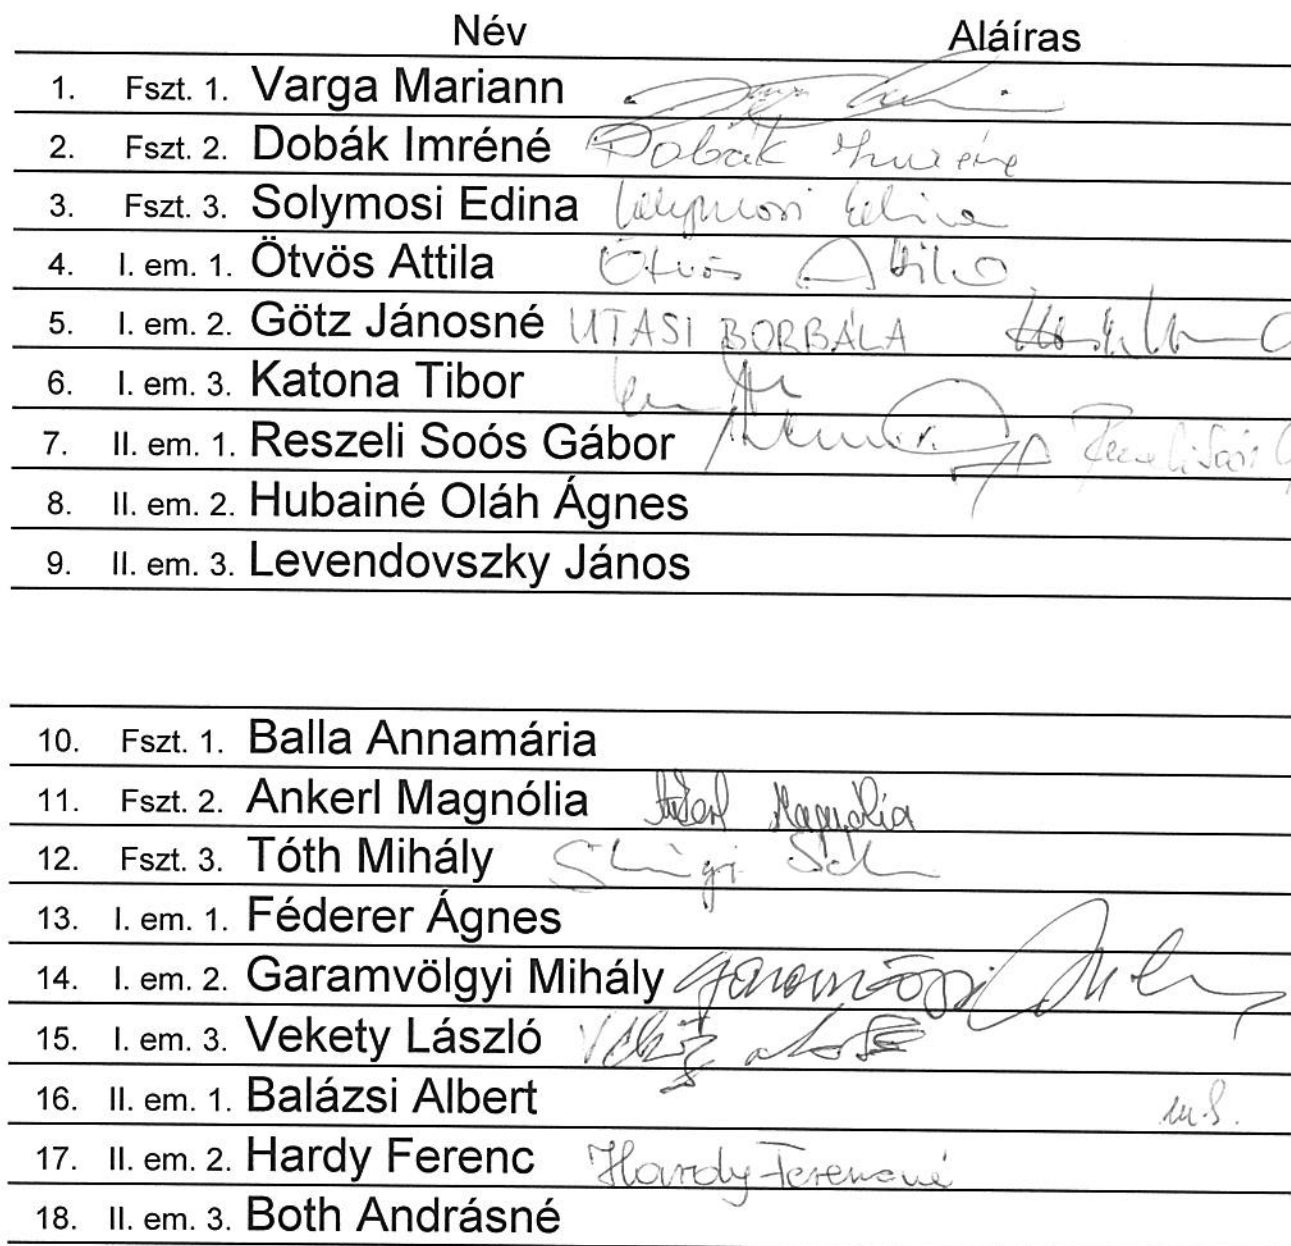 Név Aláíras
1. Fszt. 1. Varga Mariann
2. Fszt. 2. Dobák Imréné Dobák Imréné
3. Fszt. 3. Solymosi Edina Solymosi Edina
4. I. em. 1. Ötvös Attila Ötvös Attila
5. I. em. 2. Götz Jánosné UTASI BORBÁLA
6. I. em. 3. Katona Tibor
7. II. em. 1. Reszeli Soós Gábor Reszeli Soós G
8. II. em. 2. Hubainé Oláh Ágnes
9. II. em. 3. Levendovszky János
10. Fszt. 1. Balla Annamária
11. Fszt. 2. Ankerl Magnólia Ankerl Magnólia
12. Fszt. 3. Tóth Mihály
13. I. em. 1. Féderer Ágnes
14. I. em. 2. Garamvölgyi Mihály Garamvölgyi
15. I. em. 3. Vekety László
16. II. em. 1. Balázsi Albert
17. II. em. 2. Hardy Ferenc Hardy Ferencné
18. II. em. 3. Both Andrásné